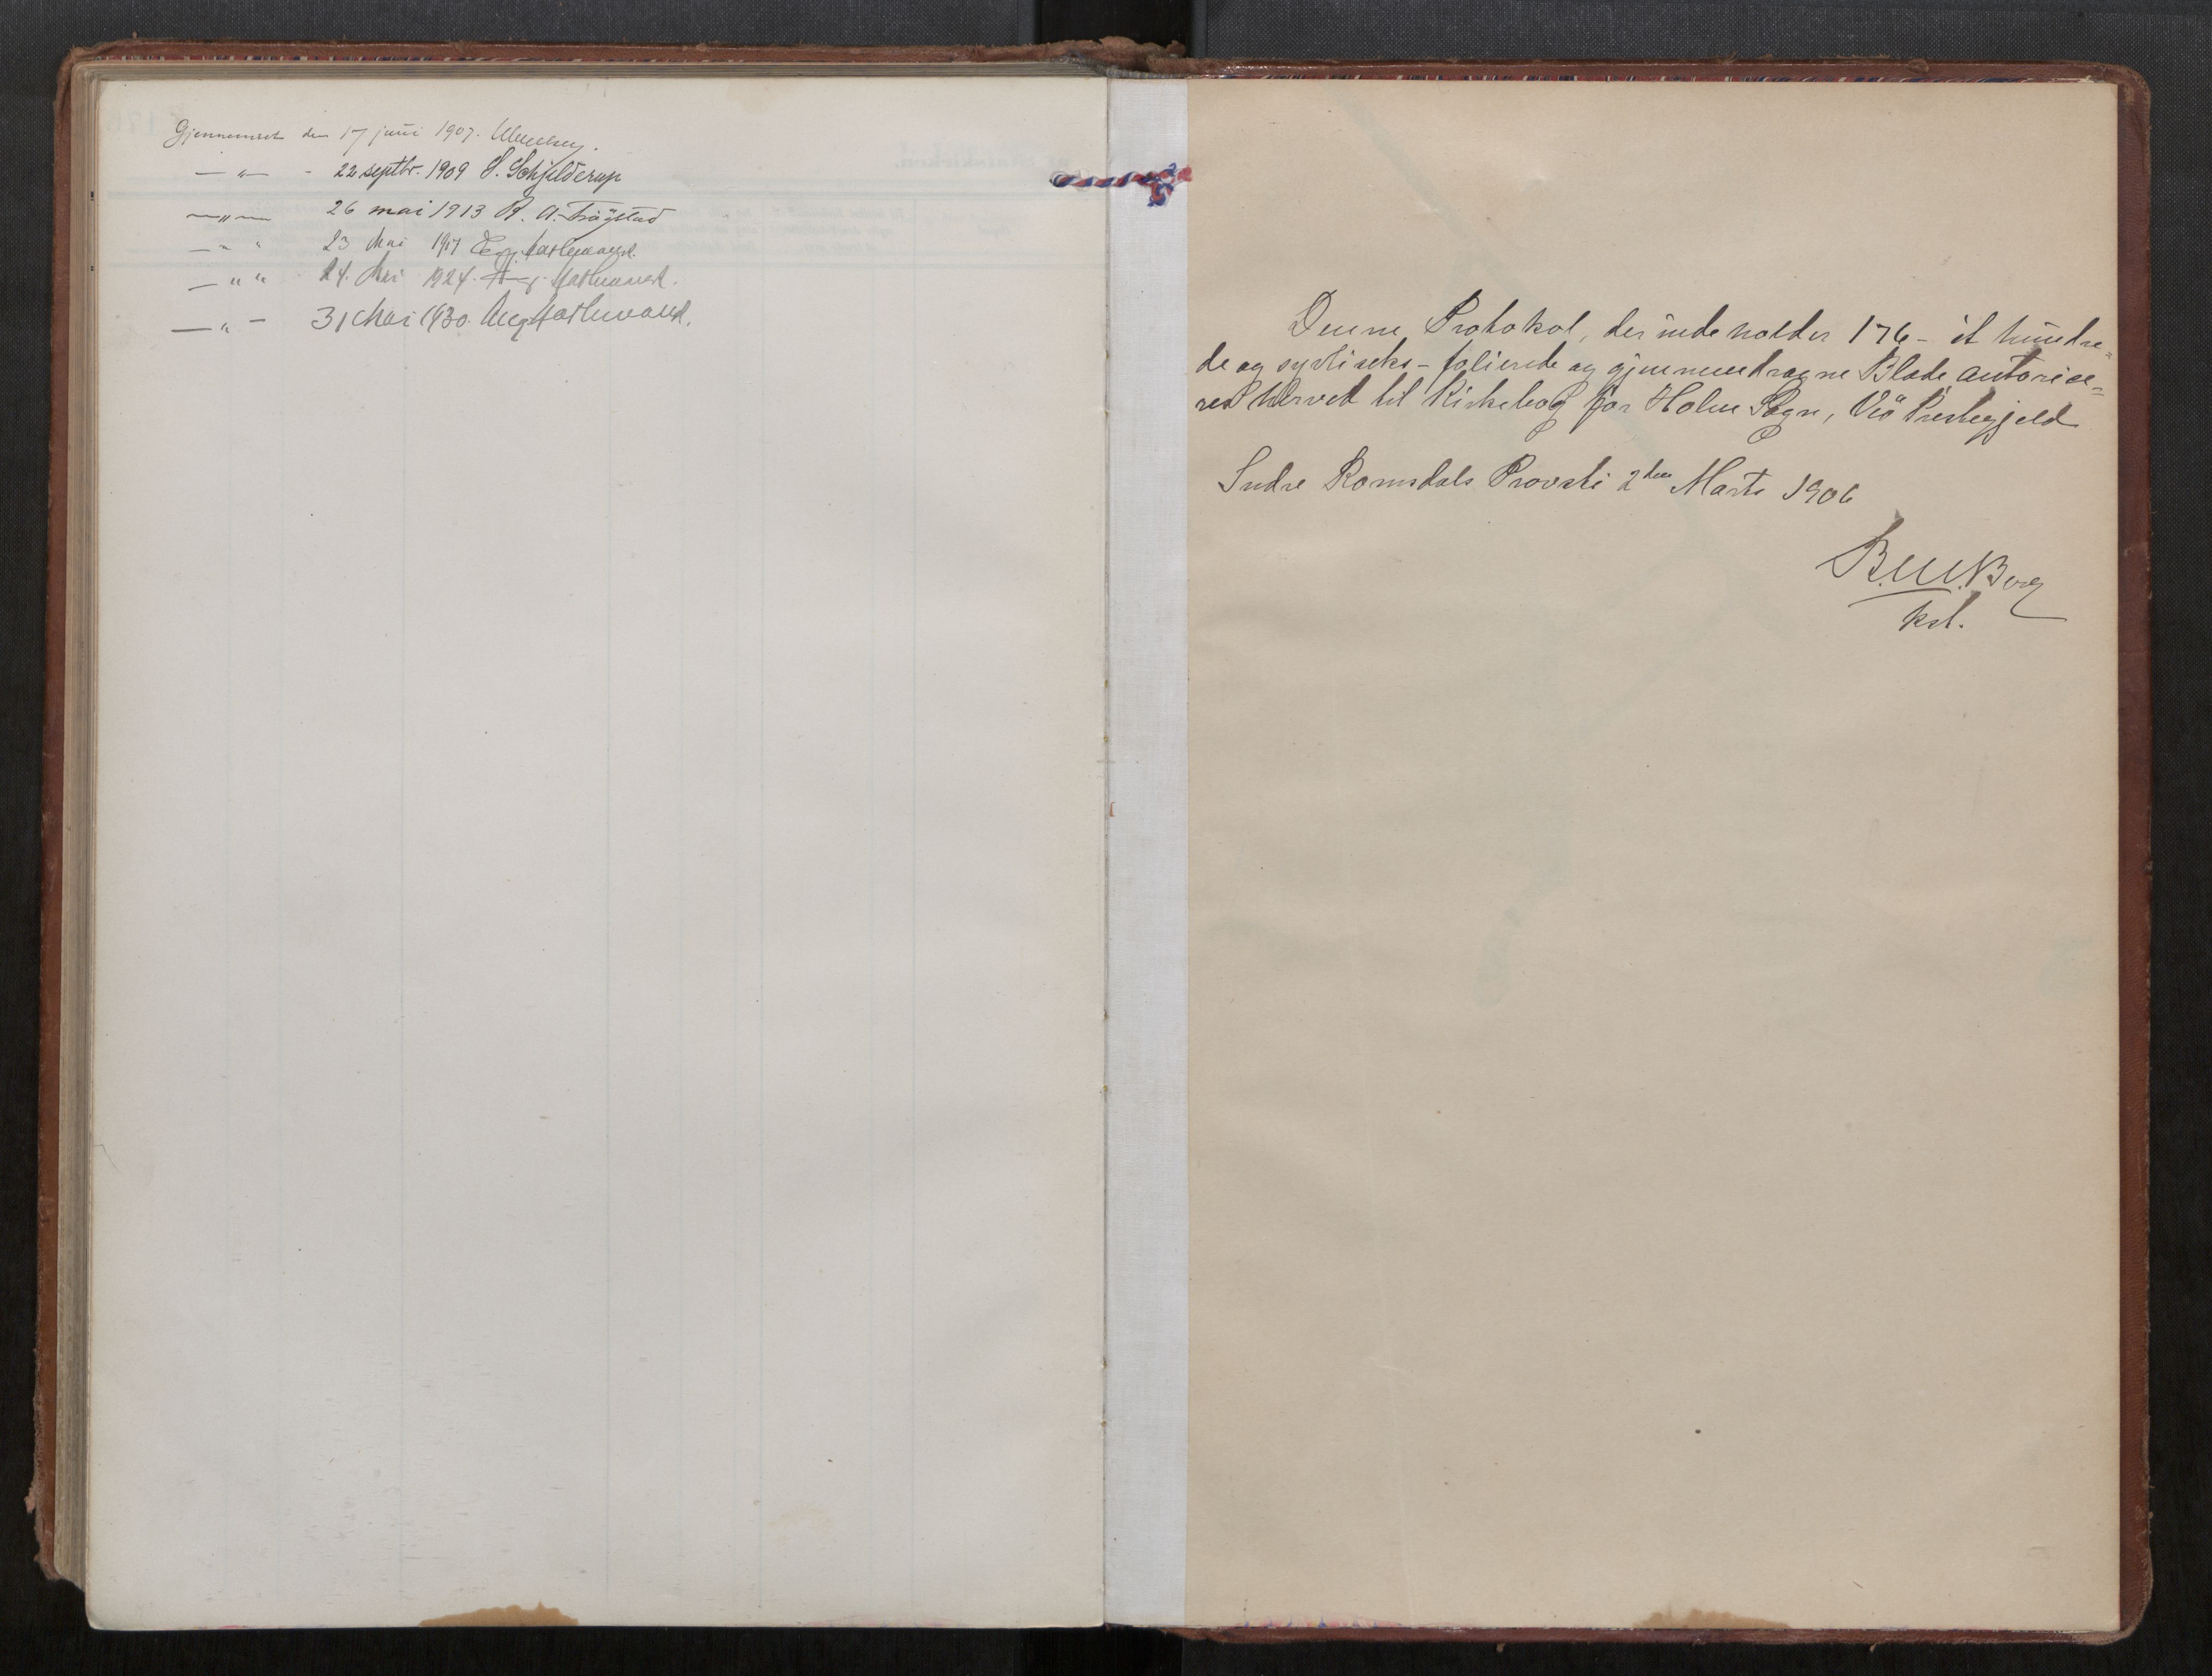 Gjennemset den 17 juni 1907.
— " — - 22 septbr. 1909 S. Schjelderup
— " — 26 mai 1913 R. A. Frøystad
— " " 23 Mai 1917
— " " 24. Mai 1924.
— " — 31 Mai 1930. Aug
Denne Protokol, der inde holder 176 - et hundre=
de og syttiseks - folierede og gjennemdragne Blade autorice=
res herved til Kirkebog for Holm Sogn, Veö Prestegjeld
Indre Romsdals Provsti 2den Marts 1906
B. M. Berg
kst.